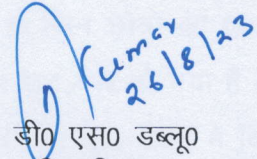 Kumar
26/8/23
डी0 एस0 डब्लू0